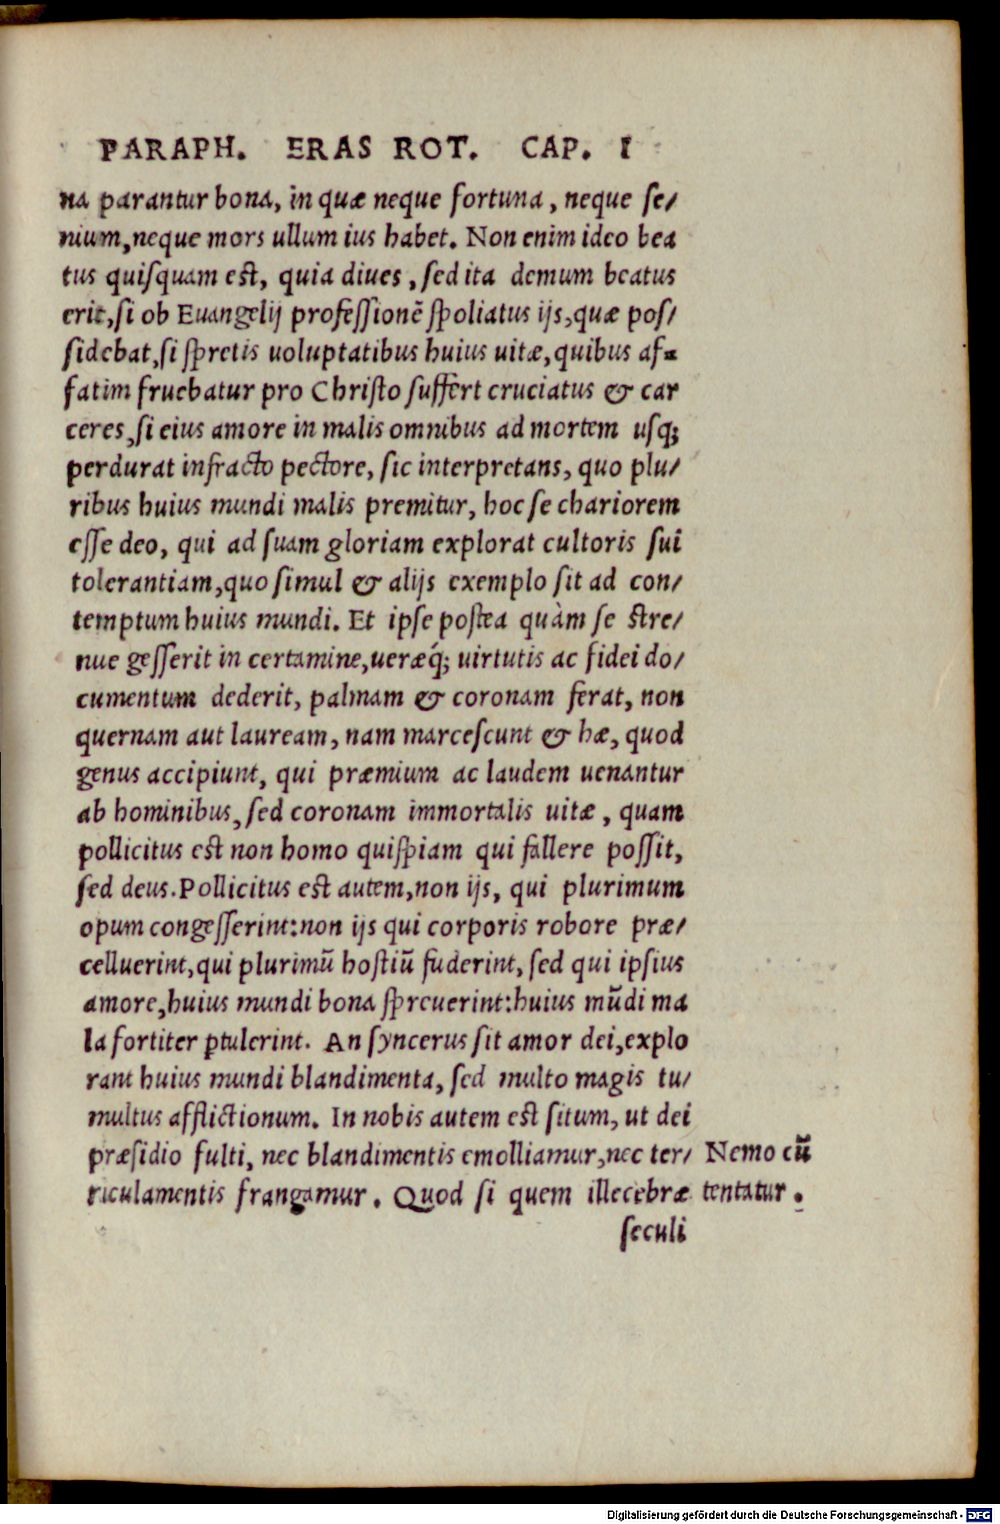 PARAPH. ERAS ROT. CAP. I
na parantur bona, in quæ neque fortuna, neque se/
nium, neque mors ullum ius habet. Non enim ideo bea
tus quisquam est, quia diues, sed ita demum beatus
erit, si ob Euangelij professionẽ spoliatus ijs, quæ pos/
sidebat, si spretis uoluptatibus huius uitæ, quibus af-
fatim fruebatur pro Christo suffert cruciatus & car
ceres, si eius amore in malis omnibus ad mortem usq;
perdurat infracto pectore, sic interpretans, quo plu/
ribus huius mundi malis premitur, hoc se chariorem
esse deo, qui ad suam gloriam explorat cultoris sui
tolerantiam, quo simul & alijs exemplo sit ad con/
temptum huius mundi. Et ipse postea quàm se stre/
nue gesserit in certamine, ueræq́; uirtutis ac fidei do/
cumentum dederit, palmam & coronam ferat, non
quernam aut lauream, nam marcescunt & hæ, quod
genus accipiunt, qui præmium ac laudem uenantur
ab hominibus, sed coronam immortalis uitæ, quam
pollicitus est non homo quispiam qui fallere possit,
sed deus. Pollicitus est autem, non ijs, qui plurimum
opum congesserint: non ijs qui corporis robore præ/
celluerint, qui plurimũ hostiũ fuderint, sed qui ipsius
amore, huius mundi bona spreuerint: huius mũdi ma
la fortiter ꝑtulerint. An syncerus sit amor dei, explo
rant huius mundi blandimenta, sed multo magis tu/
multus afflictionum. In nobis autem est situm, ut dei
præsidio fulti, nec blandimentis emolliamur, nec ter/
riculamentis frangamur. Quod si quem illecebræ
Nemo cũ
tentatur.
seculi
Digitalisierung gefördert durch die Deutsche Forschungsgemeinschaft - DFG